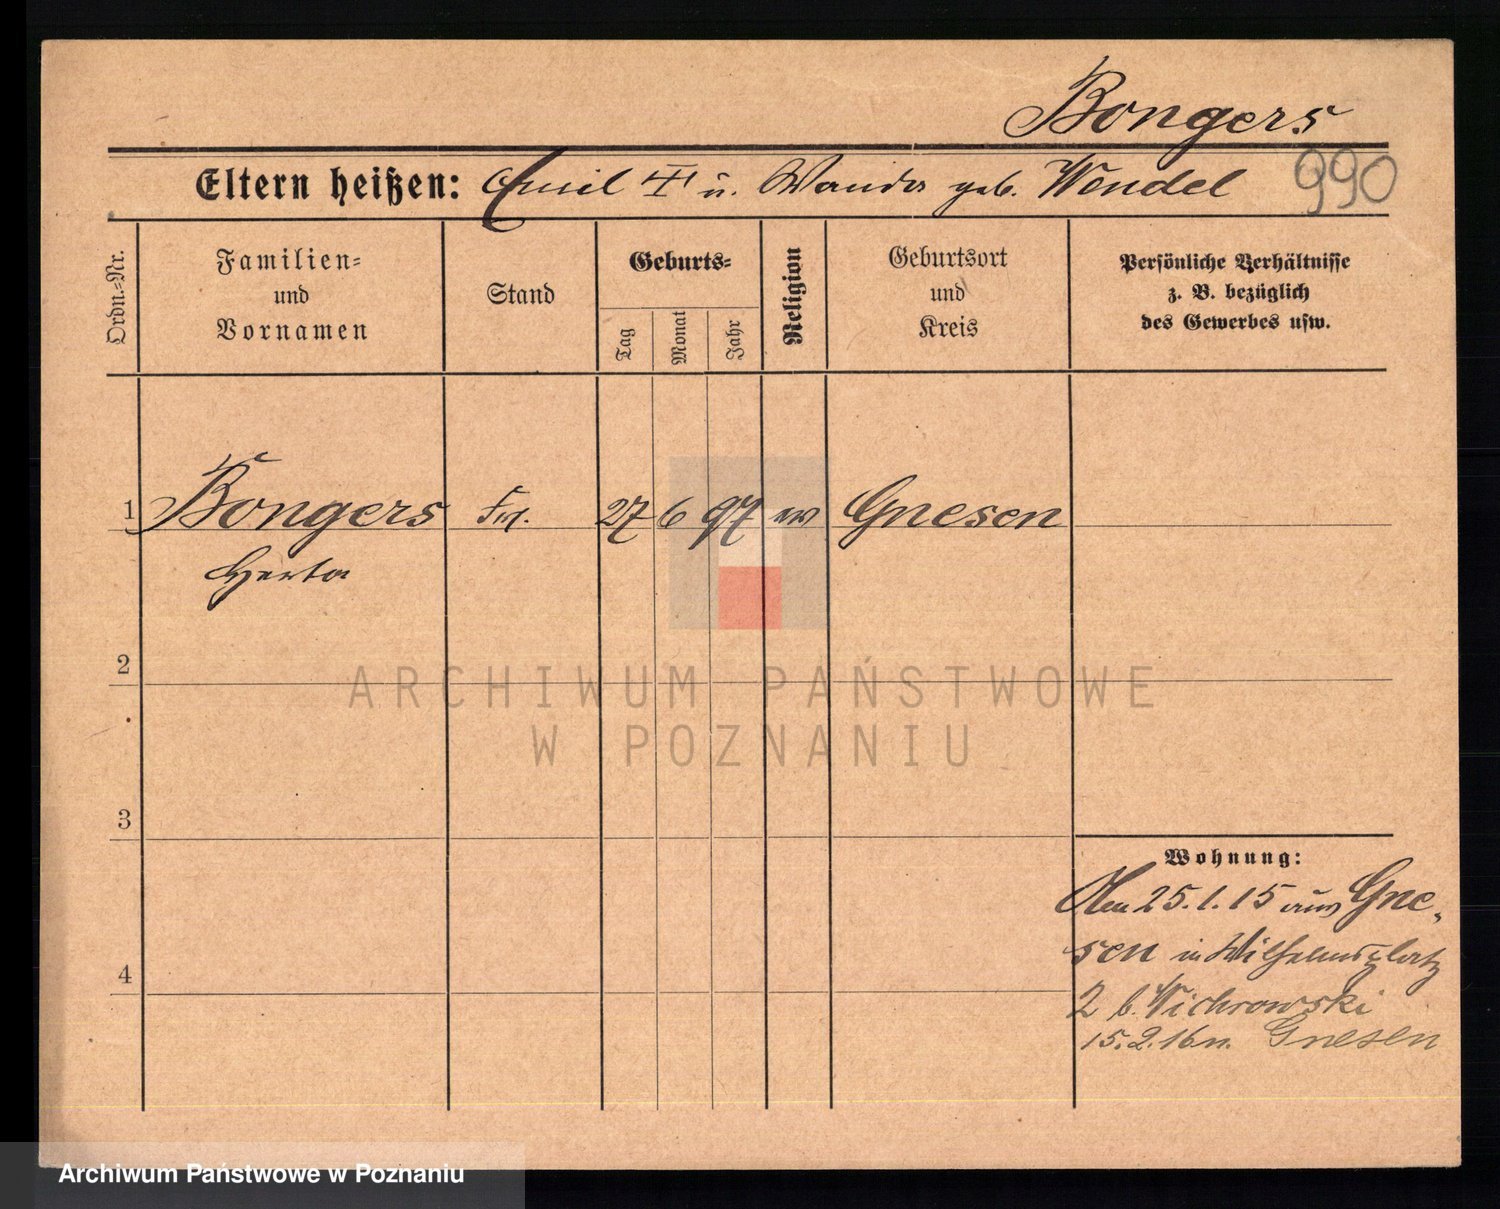 Bongers
990
Eltern heißen: Emil † u. Wanda geb. Wendel
Ordn.-Nr.
Familien-
und
Vornamen
Stand
Geburts-
Tag
Monat
Jahr
Religion
Geburtsort
und
Kreis
Persönliche Verhältnisse
z. B. bezüglich
des Gewerbes usw.
1 Bongers Frl. 27 6 97 ev Gnesen
Herta
2
3
4
Wohnung:
Am 25.1.15 aus Gne-
sen in Wilhelmsplatz
2 b. Wichrowski
15.2.16 n. Gnesen
ARCHIWUM PAŃSTWOWE
W POZNANIU
Archiwum Państwowe w Poznaniu